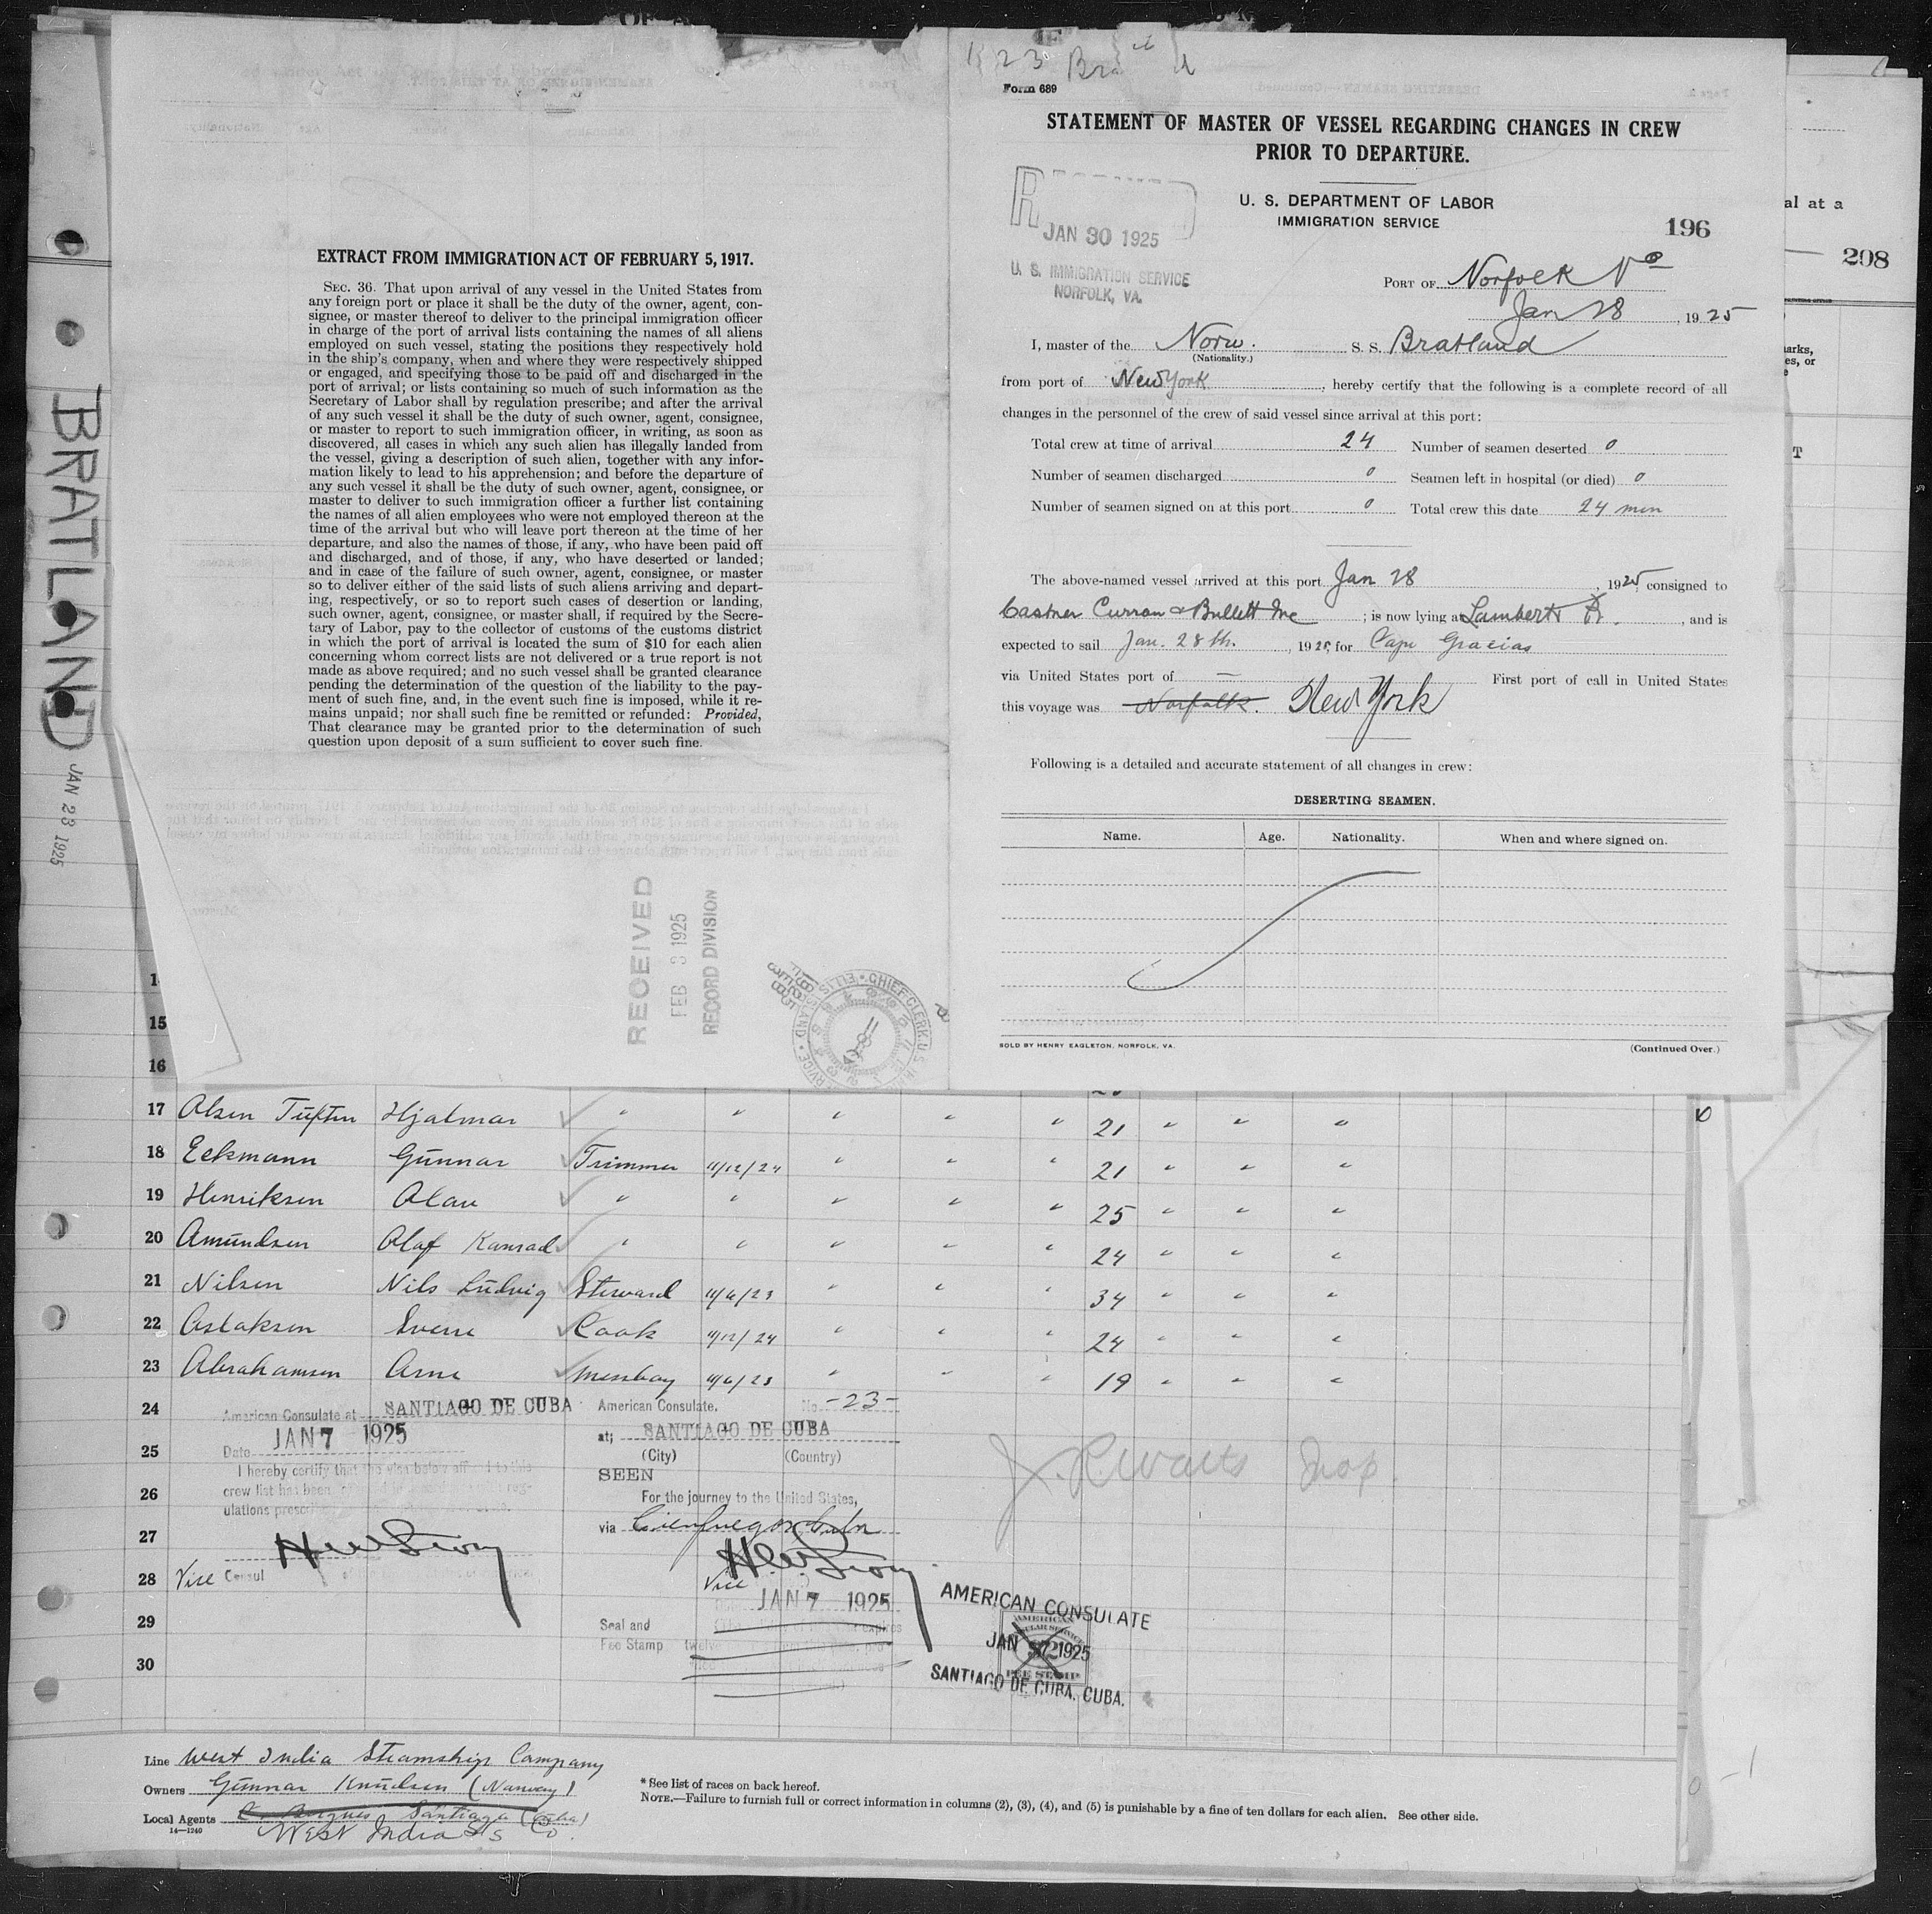 BRATLAND
JAN 23 1925
EXTRACT FROM IMMIGRATION ACT OF FEBRUARY 5, 1917.
SEC. 36. That upon arrival of any vessel in the United States from
any foreign port or place it shall be the duty of the owner, agent, con-
signee, or master thereof to deliver to the principal immigration officer
in charge of the port of arrival lists containing the names of all aliens
employed on such vessel, stating the positions they respectively hold
in the ship's company, when and where they were respectively shipped
or engaged, and specifying those to be paid off and discharged in the
port of arrival; or lists containing so much of such information as the
Secretary of Labor shall by regulation prescribe; and after the arrival
of any such vessel it shall be the duty of such owner, agent, consignee,
or master to report to such immigration officer, in writing, as soon as
discovered, all cases in which any such alien has illegally landed from
the vessel, giving a description of such alien, together with any infor-
mation likely to lead to his apprehension; and before the departure of
any such vessel it shall be the duty of such owner, agent, consignee, or
master to deliver to such immigration officer a further list containing
the names of all alien employees who were not employed thereon at the
time of the arrival but who will leave port thereon at the time of her
departure, and also the names of those, if any, who have been paid off
and discharged, and of those, if any, who have deserted or landed;
and in case of the failure of such owner, agent, consignee, or master
so to deliver either of the said lists of such aliens arriving and depart-
ing, respectively, or so to report such cases of desertion or landing,
such owner, agent, consignee, or master shall, if required by the Secre-
tary of Labor, pay to the collector of customs of the customs district
in which the port of arrival is located the sum of $10 for each alien
concerning whom correct lists are not delivered or a true report is not
made as above required; and no such vessel shall be granted clearance
pending the determination of the question of the liability to the pay-
ment of such fine, and, in the event such fine is imposed, while it re-
mains unpaid; nor shall such fine be remitted or refunded: Provided,
That clearance may be granted prior to the determination of such
question upon deposit of a sum sufficient to cover such fine.
RECEIVED
FEB 3 1925
RECORD DIVISION
Form 689
STATEMENT OF MASTER OF VESSEL REGARDING CHANGES IN CREW
PRIOR TO DEPARTURE.
U. S. DEPARTMENT OF LABOR
IMMIGRATION SERVICE
196
JAN 30 1925
U. S. IMMIGRATION SERVICE
NORFOLK, VA.
PORT OF Norfolk Va
Jan 28, 1925
I, master of the Norw. S. S. Bratland
(Nationality.)
from port of New York, hereby certify that the following is a complete record of all
changes in the personnel of the crew of said vessel since arrival at this port:
Total crew at time of arrival 24 Number of seamen deserted 0
Number of seamen discharged 0 Seamen left in hospital (or died) 0
Number of seamen signed on at this port 0 Total crew this date 24 men
The above-named vessel arrived at this port Jan 28, 1925, consigned to
Castner Curran & Bullett Inc; is now lying at Lamberts Pt., and is
expected to sail Jan. 28th., 1925, for Cape Gracias
via United States port of — First port of call in United States
this voyage was Norfolk. New York
Following is a detailed and accurate statement of all changes in crew:
DESERTING SEAMEN.
Name. Age. Nationality. When and where signed on.
SOLD BY HENRY EAGLETON, NORFOLK, VA. (Continued Over.)
al at a
208
15
16
17 Olsen Tuften Hjalmar " " " " " 21 " " "
18 Eckmann Gunnar Trimmer 11/12/24 " " " 21 " " "
19 Henriksen Olav " " " " " 25 " " "
20 Amundsen Olaf Konrad " " " " " 24 " " "
21 Nilsen Nils Ludvig Steward 11/6/23 " " " 34 " " "
22 Aslaksen Sverre Cook 11/12/24 " " " 24 " " "
23 Abrahamsen Arne Messboy 11/6/23 " " " 19 " " "
24
25
26
27
28
29
30
American Consulate at SANTIAGO DE CUBA
Date JAN 7 1925
I hereby certify that the visa below
crew list has been
Vice Consul
American Consulate. No. -23-
at; SANTIAGO DE CUBA
(City) (Country)
SEEN
For the journey to the United States,
via Cienfuegos, Cuba
Vice
JAN 7 1925
Seal and
Fee Stamp
J. R. Watts Insp.
AMERICAN CONSULATE
JAN 7 1925
SANTIAGO DE CUBA, CUBA.
Line West India Steamship Company
Owners Gunnar Knudsen (Norway)
Local Agents Santiago (Cuba)
West India S/S Co.
14—1240
* See list of races on back hereof.
NOTE.—Failure to furnish full or correct information in columns (2), (3), (4), and (5) is punishable by a fine of ten dollars for each alien. See other side.